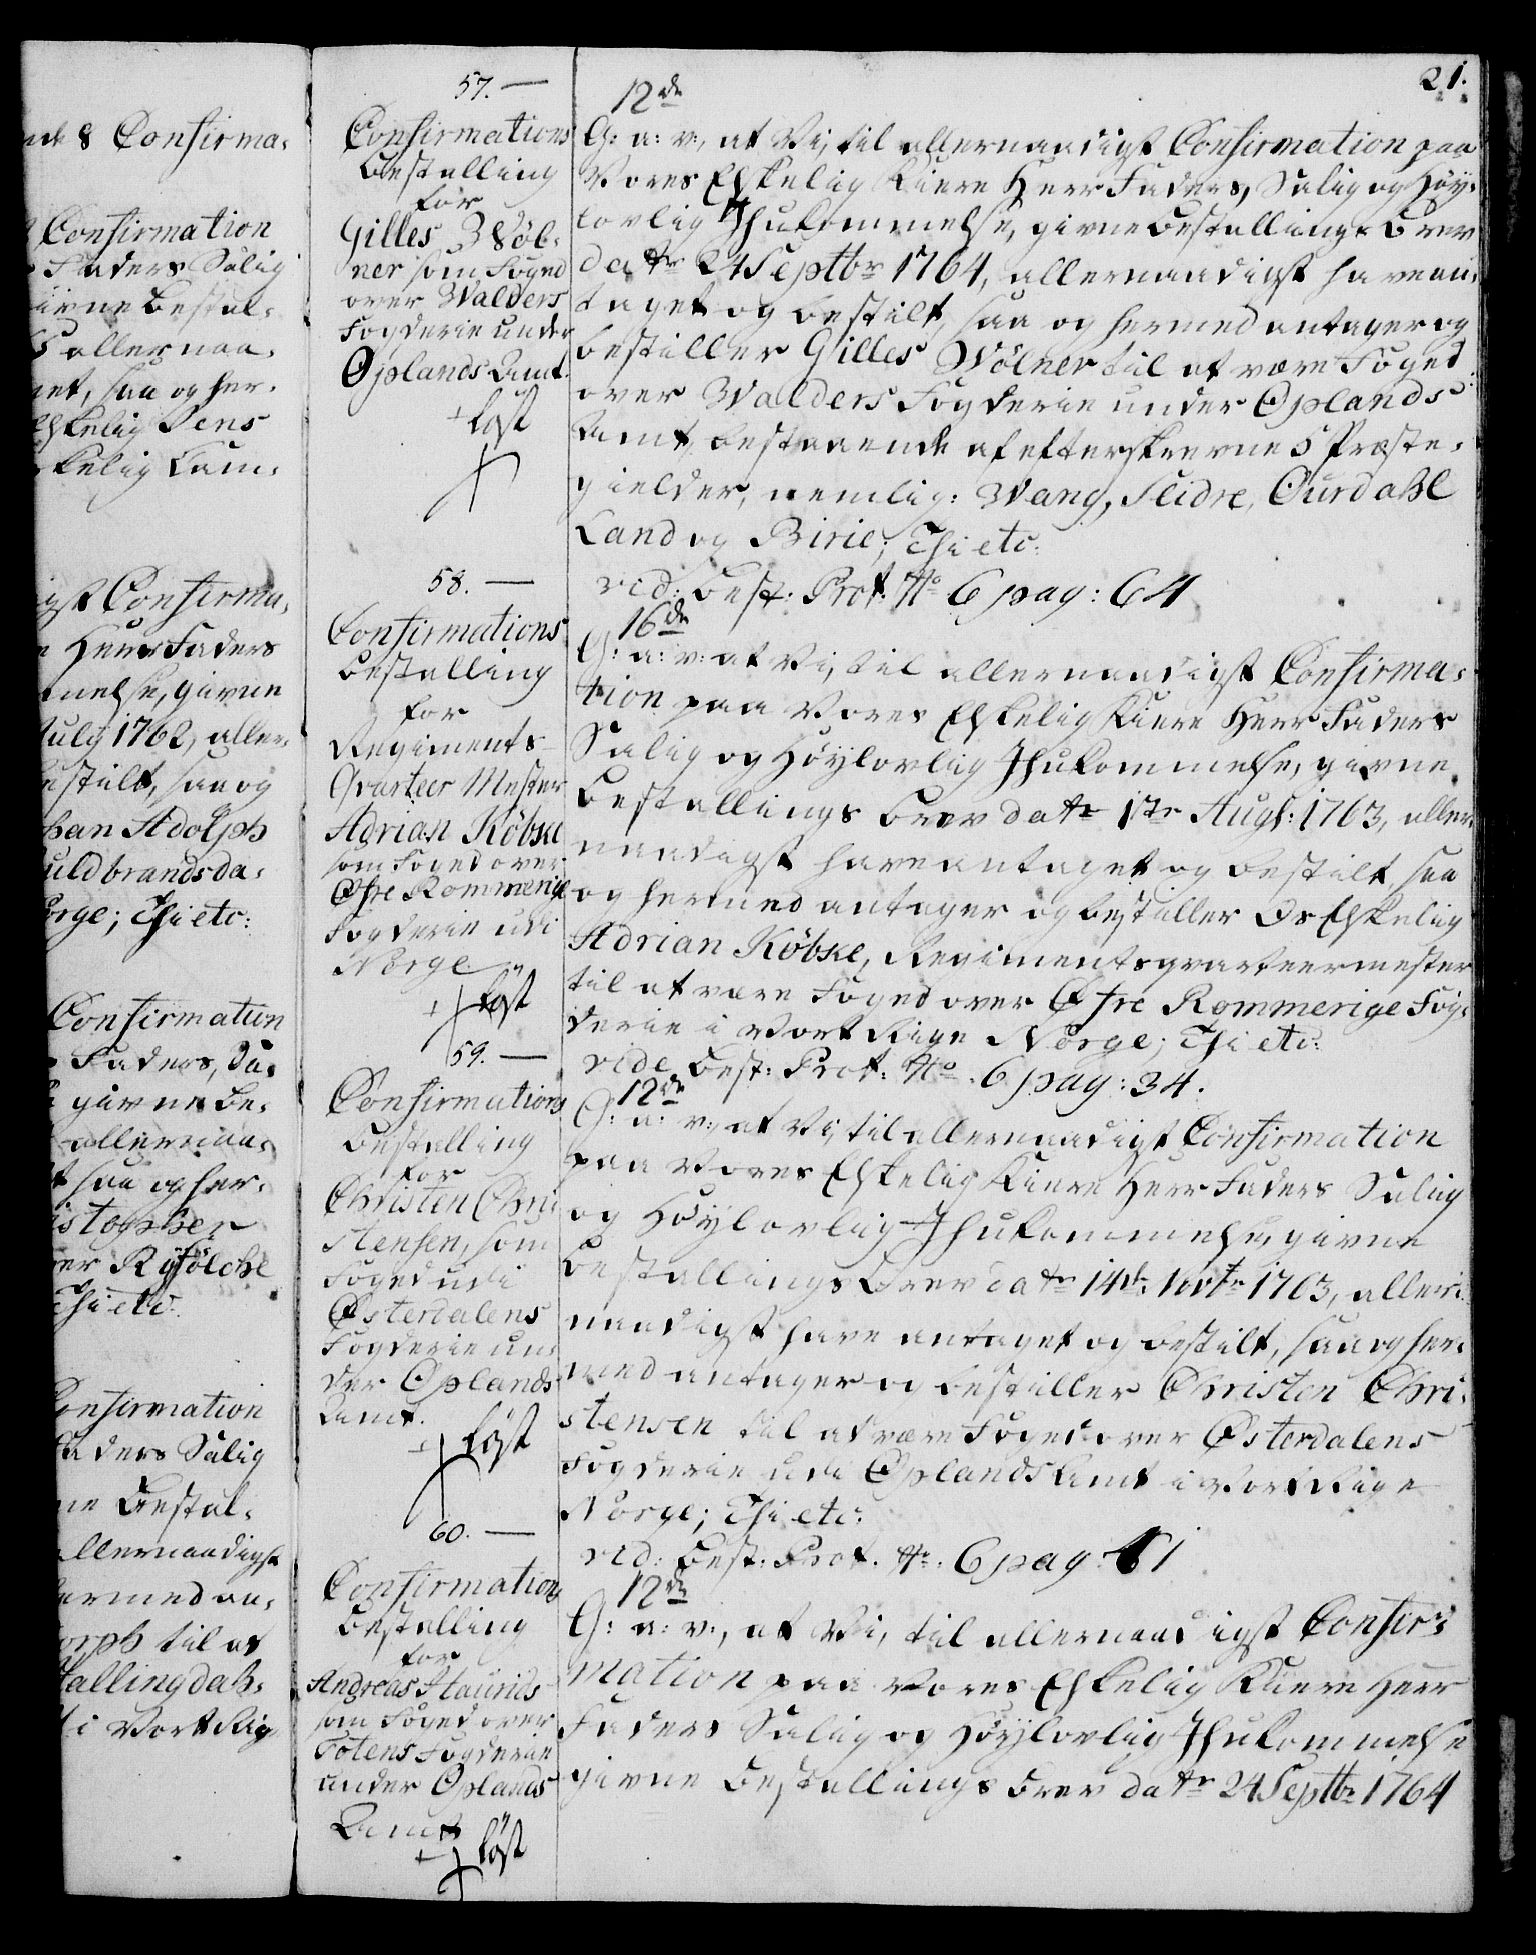 21.
nde 8 Confirma-
Confirmation
Faders Salig
givne Bestal-
allernaa-
net, saa og her-
Elskelig Jens
skelig Cam-
igst Confirma-
Herr Faders
melse, givne
July 1762, aller-
bestilt, saa og
han Adolph
uldbrandsda-
orge; Thi etc:
Confirmation
Faders, Sa-
givne Be-
allernaa-
t saa og her-
istopher
er Ryfölcke
Thi etc:
Confirmation
Faders Salig
ne Bestal-
allernaadigst
hermed an-
orph til at
Hallingdals-
i Vort Rige
57.
Confirmations
Bestalling
for
Gilles Wöl-
ner som Foged
over Walders
Fogderie under
Oplands Amt.
+ löst
12de
G: a: v:, at Vi, til allernaadigst Confirmation paa
Vores Elskelig Kiere Herr Faders, Salig og Höy-
lovlig Ihukommelse, givne Bestallings Brev
datr 24 Septbr 1764, allernaadigst have an-
taget og bestilt, saa og hermed antager og
bestiller Gilles Wölner til at være Foged
over Walders Fogderie under Oplands
Amt, bestaaende af efterskrevne 5 Præste-
gielder, nemlig: Wang, Slidre, Ourdahl
Land og Birie; Thi etc:
vid: Best: Prot: No 6 pag: 64
58.
Confirmations
Bestalling
for
Regiments-
Qvarteer Mester
Adrian Köbke
som Foged over
Öfre Rommerige
Fogderie udi
Norge
+ löst
16de
G: a: v: at Vi, til allernaadigst Confirma-
tion paa Vores Elskelig Kiere Herr Faders
Salig og Höylovlig Ihukommelse, givne
Bestallings Brev datr 1ste Augs: 1763, aller-
naadigst have antaget og bestilt, saa
og hermed antager og bestiller Os Elskelig
Adrian Köbke, Regimentsqvarteermester
til at være Foged over Öfre Rommerige Fog-
derie i Vort Rige Norge; Thi etc:
vide Best: Prot: No 6 pag: 34.
59.
Confirmations
Bestalling
for
Christen Chri-
stensen, som
Foged udi
Österdalens
Fogderie un-
der Oplands
Amt.
+ löst
12de
G: a: v:, at Vi, til allernaadigst Confirmation
paa Vores Elskelig Kiere Herr Faders Salig
og Höylovlig Ihukommelse, givne
Bestallings Brev datr 14de Novbr 1763, aller-
naadigst have antaget og bestilt, saa og her-
med antager og bestiller Christen Chri-
stensen til at være Foged over Österdalens
Fogderie udi Oplands Amt i Vort Rige
Norge; Thi etc:
vid: Best: Prot: No 6 pag: 41
60.
Confirmations
Bestalling
for
Andreas Haurids
som Foged over
Totens Fogderie
under Oplands
Amt
+ löst
12de
G: a: v:, at Vi, til allernaadigst Confir-
mation paa Vores Elskelig Kiere Herr
Faders Salig og Höylovlig Ihukommelse
givne Bestallings Brev datr 24 Septbr 1764